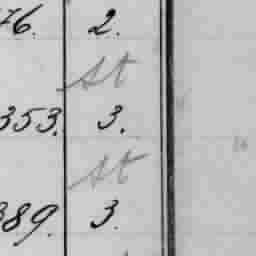 76. 2.
st
353. 3.
st
389. 3.